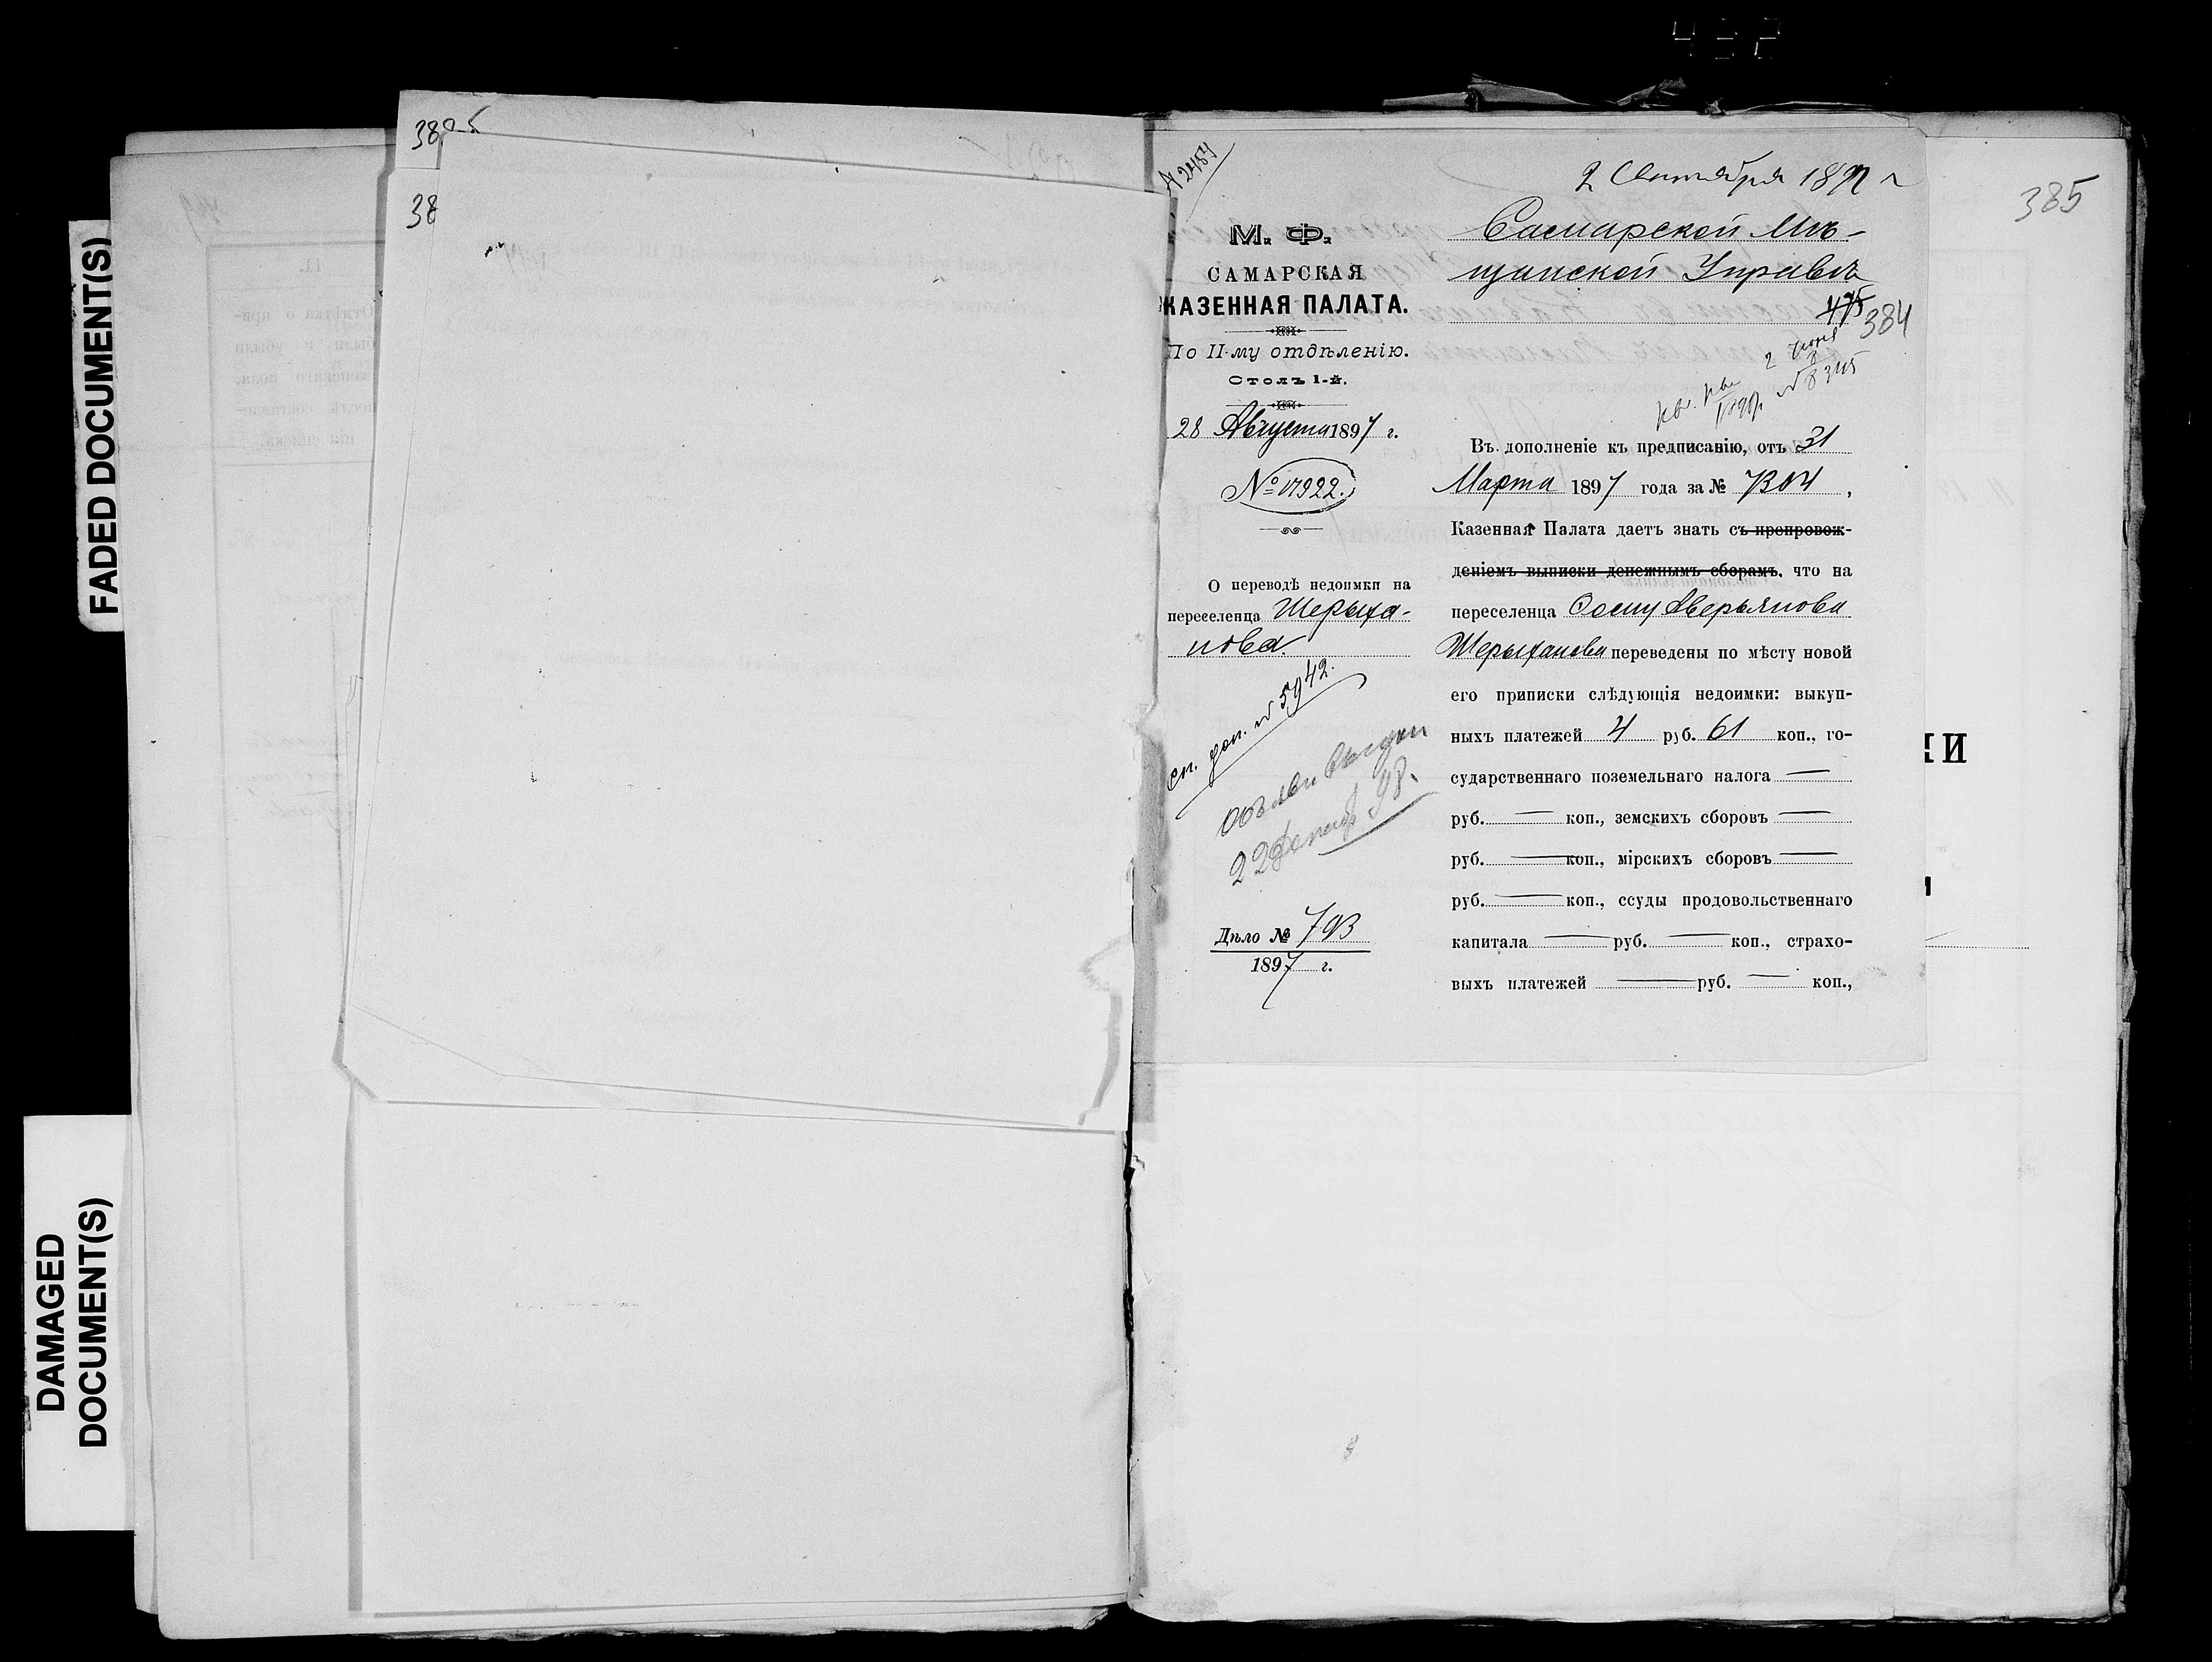 FADED DOCUMENT(S)
DAMAGED
DOCUMENT(S)
38
385
2 Сентября 1897 г
М. Ф.
САМАРСКАЯ
КАЗЕННАЯ ПАЛАТА.
По II-му отдѣленію.
Столъ 1-й.
28 Августа 1897 г.
№ 17922.
О переводѣ недоимки на
переселенца Шерыха-
нова.
сп. доп. № 5942.
Дѣло № 793
1897 г.
Самарской Мѣ-
щанской Управѣ
475
384
№ 8345
Въ дополненіе къ предписанію, отъ 31
Марта 1897 года за № 7304,
Казенная Палата даетъ знать съ препровож-
деніемъ выписки денежнымъ сборамъ, что на
переселенца Аверьянова
Шерыханова переведены по мѣсту новой
его приписки слѣдующія недоимки: выкуп-
ныхъ платежей 4 руб. 61 коп., го-
сударственнаго поземельнаго налога —
руб. — коп., земскихъ сборовъ —
руб. — коп., мірскихъ сборовъ —
руб. — коп., ссуды продовольственнаго
капитала — руб. — коп., страхо-
выхъ платежей — руб. — коп.,